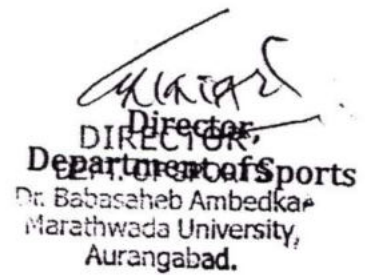 Director,
DIRECTOR
Department of Sports
DEPT. OF SPORTS
Dr. Babasaheb Ambedkar
Marathwada University,
Aurangabad.